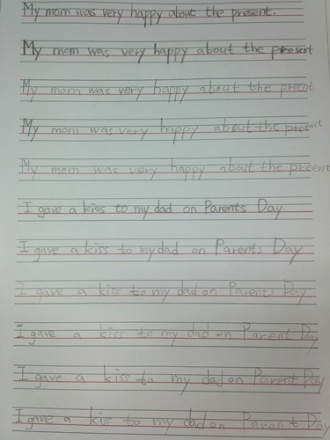 My mom was very happy about the present.
My mom was very happy about the present
My mom was very happy about the present
My mom was very happy about the present
My mom was very happy about the present
I gave a kiss to my dad on Parents Day
I gave a kiss to my dad on Parents Day
I gave a kiss to my dad on Parents Day
I gave a kiss to my dad on Parent Day
I gave a kiss to my dad on Parent Day
I gave a kiss to my dad on Parent Day